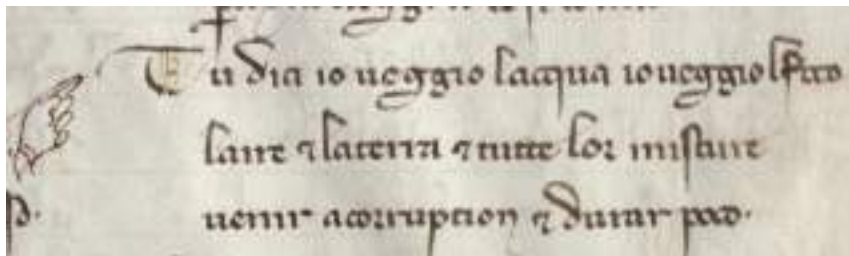 Tu dıa ıo ueggıo lacqua ıo ueggıo lfoco
laire ⁊ laterra ⁊ tutte lor misture
uenir acorruption ⁊ durar poco·
p·